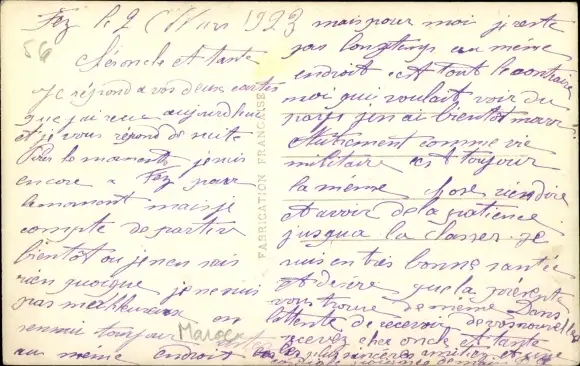 Fez le 2 Mars 1923
56
Cér oncle et tante
Je répond a vos deux cartes
que j'ai reçu aujourd'hui
et je vous répond de suite
Pour le moment je suis
encore a Fez pour
le moment mais je
compte de partir
bientot ou je n'en sais
rien quoique je ne suis
pas malheureux on
sennui toujours
au même endroit
Maroc
FABRICATION FRANÇAISE
mais pour moi je reste
pas longtemps au même
endroit et tout le contraire
moi qui voulait voir du
pays j'en ai bientot marre
Autrement comme vie
militaire est toujour
la même rien dire
et avoir de la patience
jusqua la classe je
suis en très bonne santée
et désire que la présente
vous trouve de même Dans
l'attente de recevoir de vos nouvelles
recevez cher oncle et tante
les plus sincères amitiés et